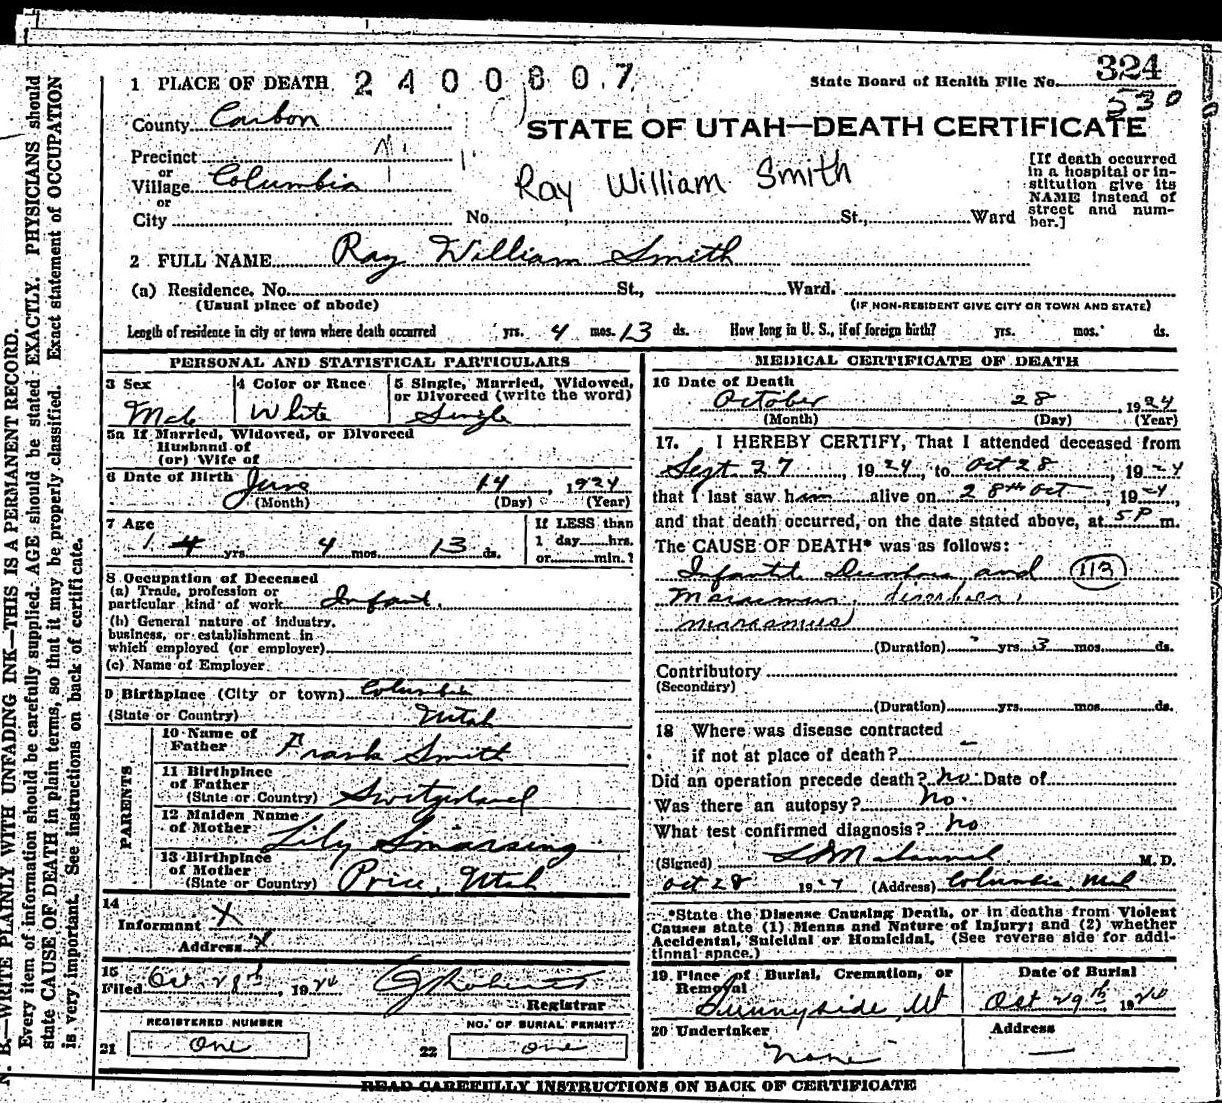 324
1 PLACE OF DEATH 2400807 State Board of Health File No.
530
County Carbon
STATE OF UTAH—DEATH CERTIFICATE
Precinct
or
Village Columbia
or
City
Ray William Smith
No. St., Ward
[If death occurred
in a hospital or in-
stitution give its
NAME instead of
street and num-
ber.]
2 FULL NAME Ray William Smith
(a) Residence, No. St., Ward.
(Usual place of abode) (IF NON-RESIDENT GIVE CITY OR TOWN AND STATE)
Length of residence in city or town where death occurred yrs. 4 mos. 13 ds. How long in U. S., if of foreign birth? yrs. mos. ds.
PERSONAL AND STATISTICAL PARTICULARS
3 Sex 4 Color or Race 5 Single, Married, Widowed,
or Divorced (write the word)
Male White Single
5a If Married, Widowed, or Divorced
Husband of
(or) Wife of
6 Date of Birth June 14, 1924
(Month) (Day) (Year)
7 Age If LESS than
1 day hrs.
yrs. 4 mos. 13 ds. or min.?
8 Occupation of Deceased
(a) Trade, profession or
particular kind of work Infant.
(b) General nature of industry,
business, or establishment in
which employed (or employer)
(c) Name of Employer
9 Birthplace (City or town) Columbia
(State or Country) Utah
PARENTS
10 Name of
Father Frank Smith
11 Birthplace
of Father
(State or Country) Switzerland
12 Maiden Name
of Mother Lily
13 Birthplace
of Mother
(State or Country) Price, Utah
14
Informant X
Address X
15
Filed Oct 29th, 1924
Registrar
REGISTERED NUMBER NO. OF BURIAL PERMIT
21 One 22 one
MEDICAL CERTIFICATE OF DEATH
16 Date of Death
October 28, 1924
(Month) (Day) (Year)
17. I HEREBY CERTIFY, That I attended deceased from
Sept. 27, 1924, to Oct 28, 1924
that I last saw him alive on 28th Oct, 1924,
and that death occurred, on the date stated above, at 5 P m.
The CAUSE OF DEATH* was as follows:
Infantile and 113
Marasmus, diarrhea,
marasmus
(Duration) yrs. 3 mos. ds.
Contributory
(Secondary)
(Duration) yrs. mos. ds.
18 Where was disease contracted
if not at place of death?
Did an operation precede death? no. Date of
Was there an autopsy? No.
What test confirmed diagnosis? No
(Signed) M. D.
Oct 28 1924 (Address) Columbia,
*State the Disease Causing Death, or in deaths from Violent
Causes state (1) Means and Nature of Injury; and (2) whether
Accidental, Suicidal or Homicidal. (See reverse side for addi-
tional space.)
19. Place of Burial, Cremation, or Date of Burial
Removal
Sunnyside, Ut Oct 29th, 1924
20 Undertaker Address
none —
READ CAREFULLY INSTRUCTIONS ON BACK OF CERTIFICATE
N. B.—WRITE PLAINLY WITH UNFADING INK—THIS IS A PERMANENT RECORD.
Every item of information should be carefully supplied. AGE should be stated EXACTLY. PHYSICIANS should
state CAUSE OF DEATH in plain terms, so that it may be properly classified. Exact statement of OCCUPATION
is very important. See instructions on back of certificate.